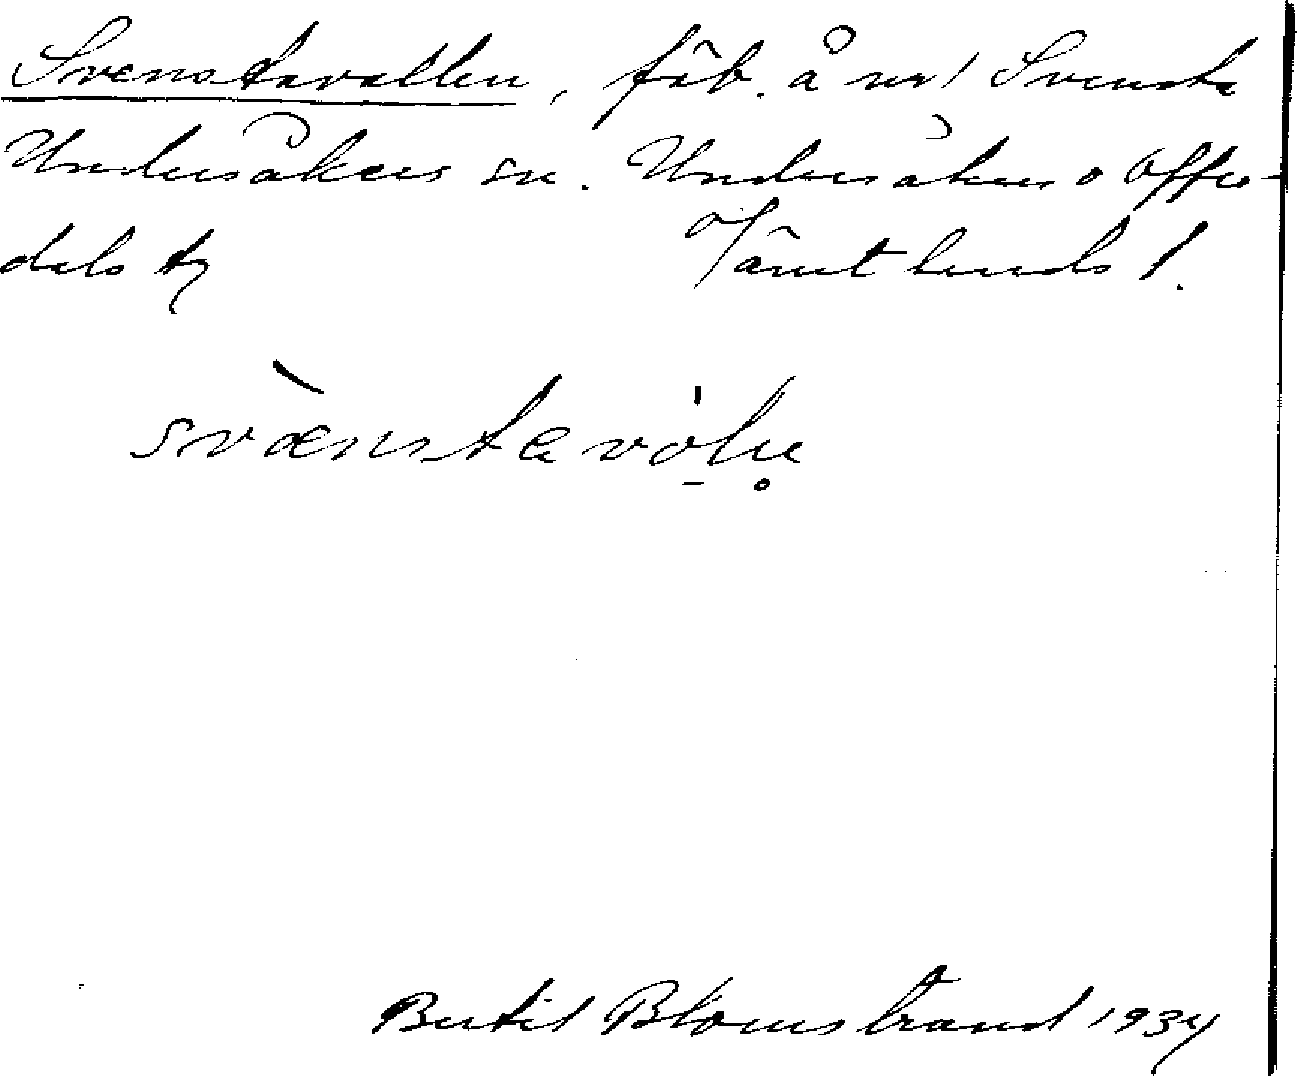 Svenstavallen, fäb. å nr 1 Svensta
Undersåkers sn. Undersåkers o Offer-
dals tg Jämtlands l.
svænstavóln
Bertil Blomstrand 1934